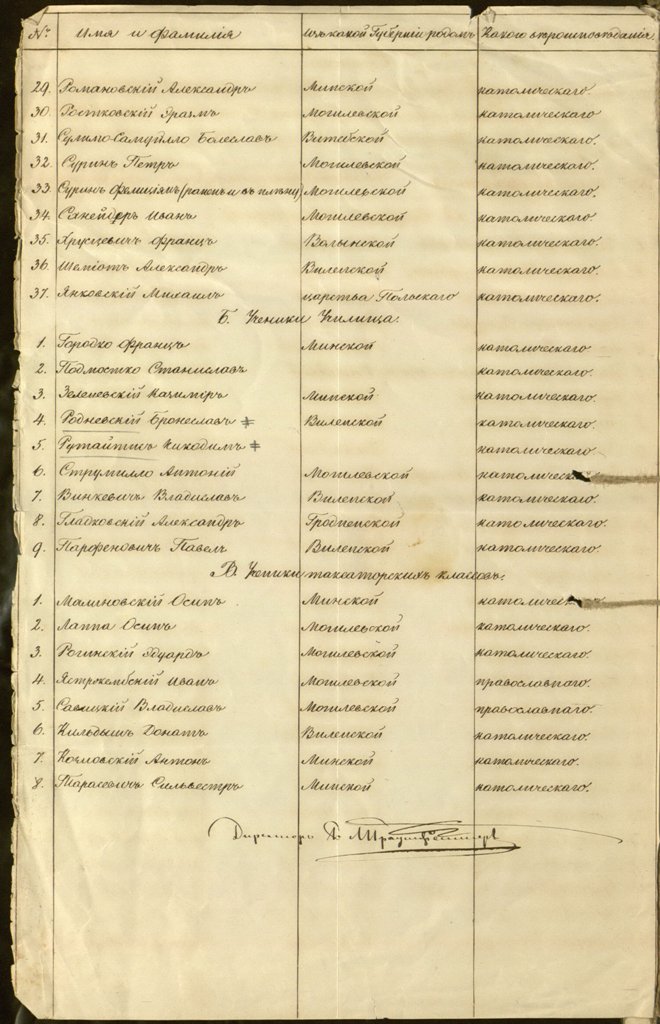 № Имя и фамилія Изъ какой Губерніи родомъ Какого вѣроисповѣданія
29. Романовскій Александръ Минской католическаго.
30. Ростковскій Эразмъ Могилевской католическаго
31. Сулимо-Самуйлло Болеславъ Витебской католическаго.
32. Суринъ Петръ Могилевской католическаго.
33. Суринъ Фелиціянъ (раненъ и въ плѣну) Могилевской католическаго.
34. Сѣнейдръ Иванъ Могилевской католическаго.
35. Хрусцевичъ Францъ Волынской католическаго.
36. Шеміотъ Александръ Виленской католическаго.
37. Янковскій Михаилъ царства Польскаго католическаго.
Б. Ученики Училища.
1. Городко Францъ Минской католическаго
2. Подмостко Станиславъ католическаго.
3. Зеленевскій Казиміръ Минской католическаго.
4. Родневскій Брониславъ Виленской католическаго.
5. Рутайтисъ Никодимъ католическаго.
6. Струмилло Антоній Могилевской католическа
7. Винкевичъ Владиславъ Виленской католическаго.
8. Гладковскій Александръ Гродненской католическаго.
9. Парфеновичъ Павелъ Виленской католическаго.
В. Ученики таксаторскихъ классовъ.
1. Малиновскій Осипъ Минской католическ
2. Лаппа Осипъ Могилевской католическаго.
3. Рогинскій Эдуардъ Могилевской католическаго.
4. Ястржембскій Иванъ Могилевской православнаго.
5. Савицкій Владиславъ Могилевской православнаго.
6. Кильдышъ Донатъ Виленской католическаго.
7. Козловскій Антонъ Минской католическаго.
8. Тарасевичъ Сильвестръ Минской католическаго.
Директоръ